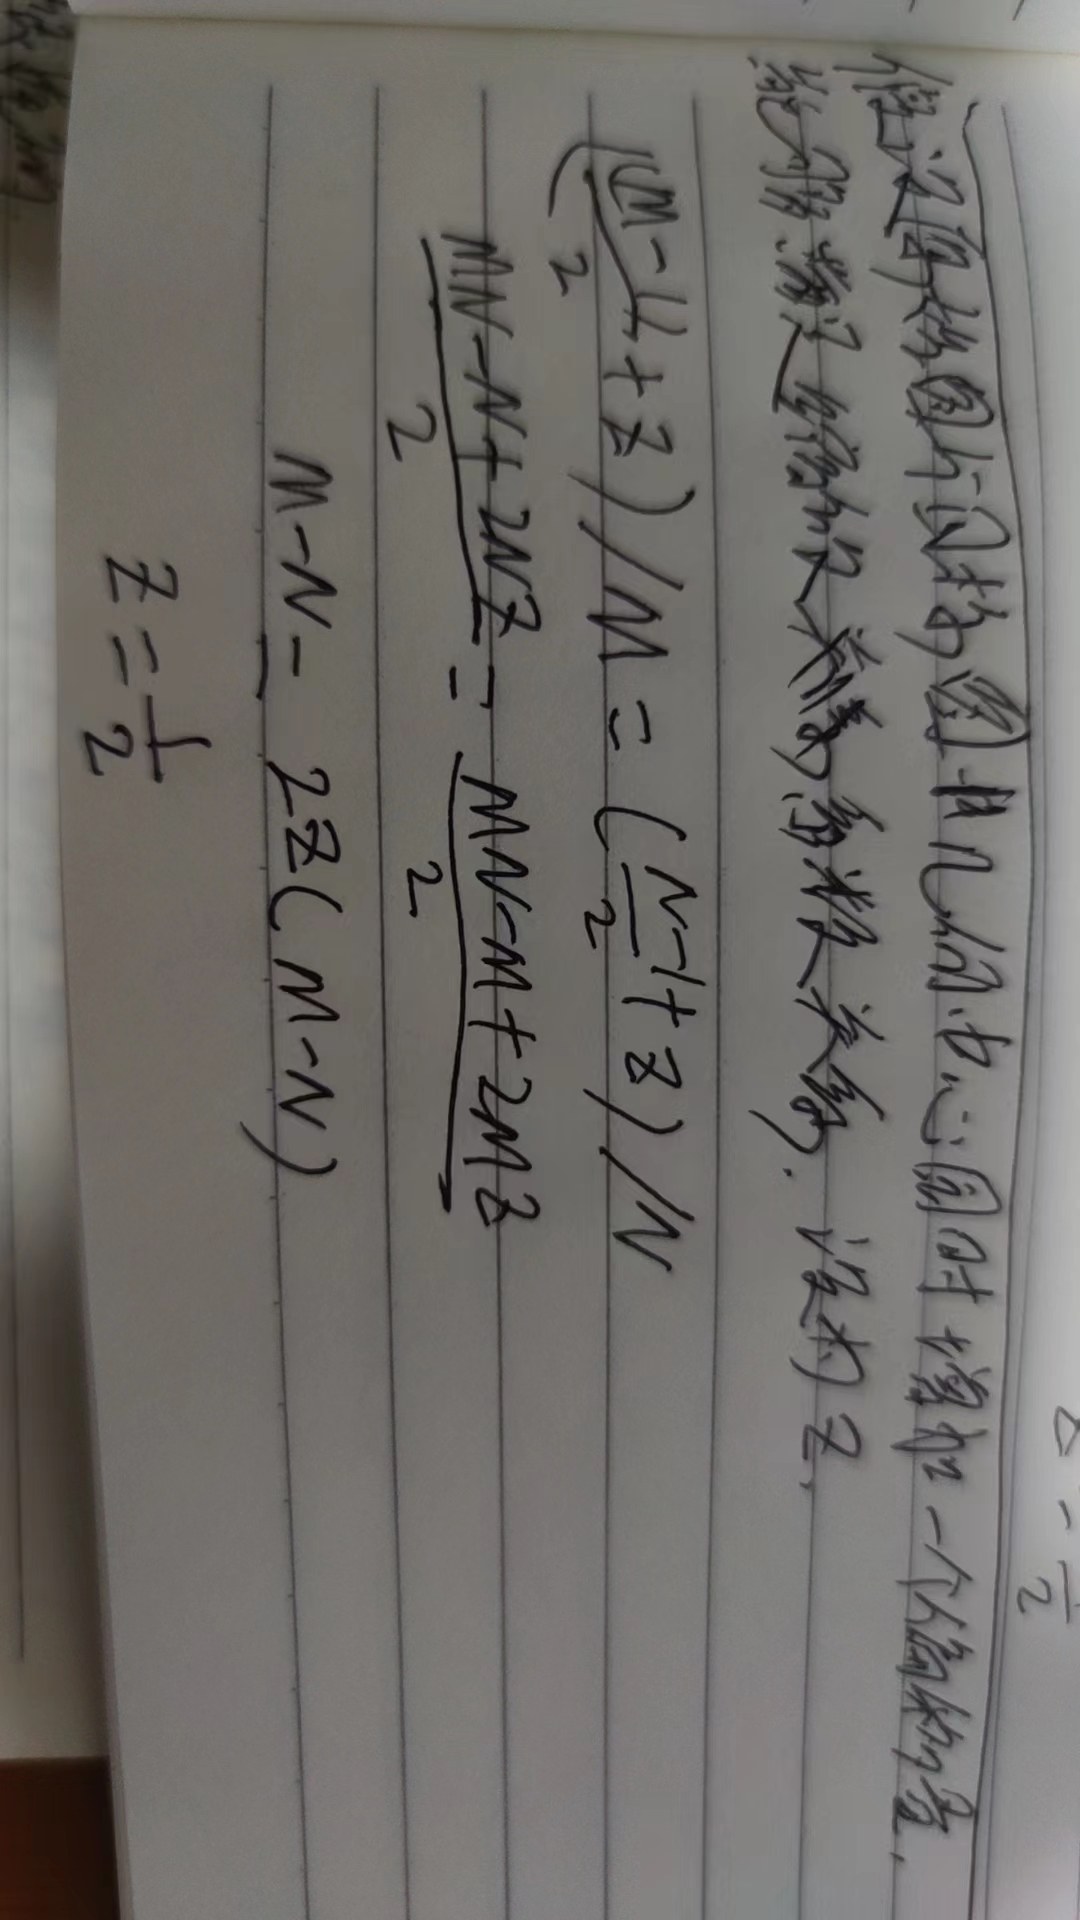 2
假设原始图与目标图其几何中心同时增加一个偏移量,
能够满足缩放关系系数关系. 设为Z,
((M-1)/2 + Z)/M = ((N-1)/2 + Z)/N
(MN-N+2NZ)/2 = (MN-M+2MZ)/2
M-N = 2Z(M-N)
Z = 1/2